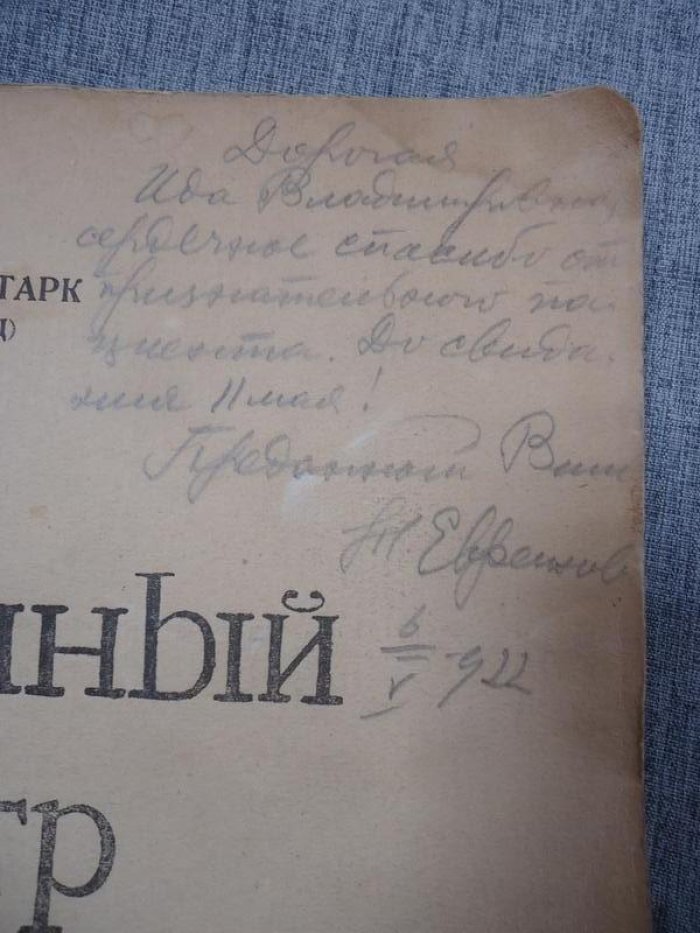 Дорогая
Ида Владимировна,
сердечное спасибо от
признательного па-
циента. До свида-
ния 11 мая!
Преданный Вам
Н. Евреинов
6
V
922
ТАРК
Д)
нный
тр